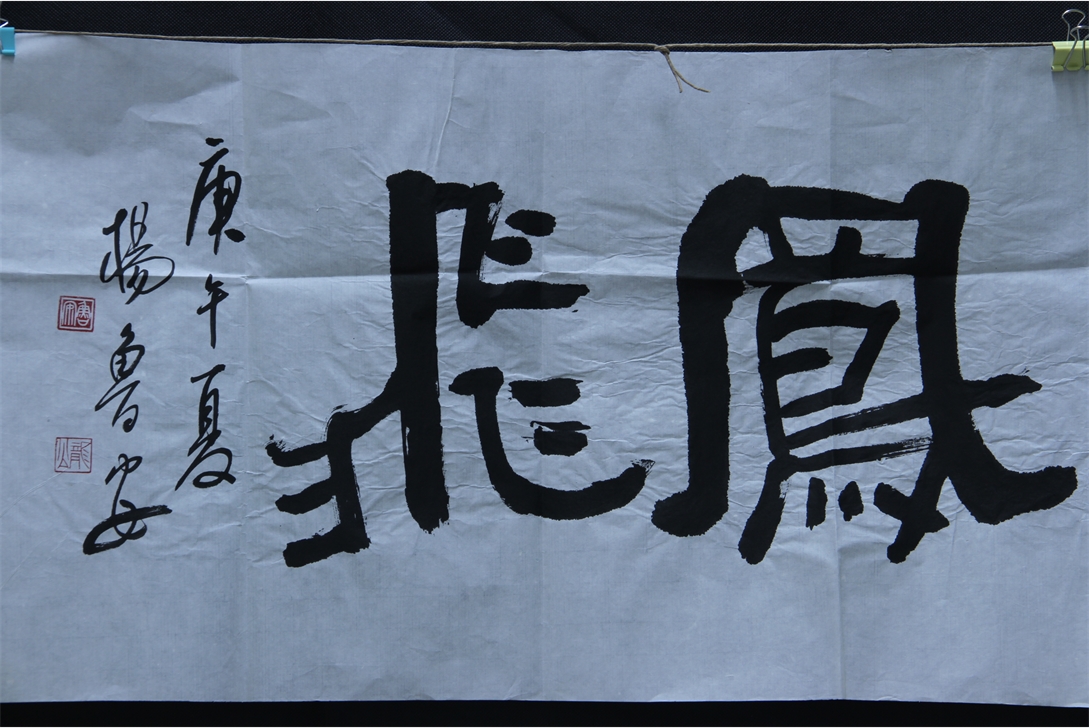 鳳飛
庚午夏
楊魯安
魯安